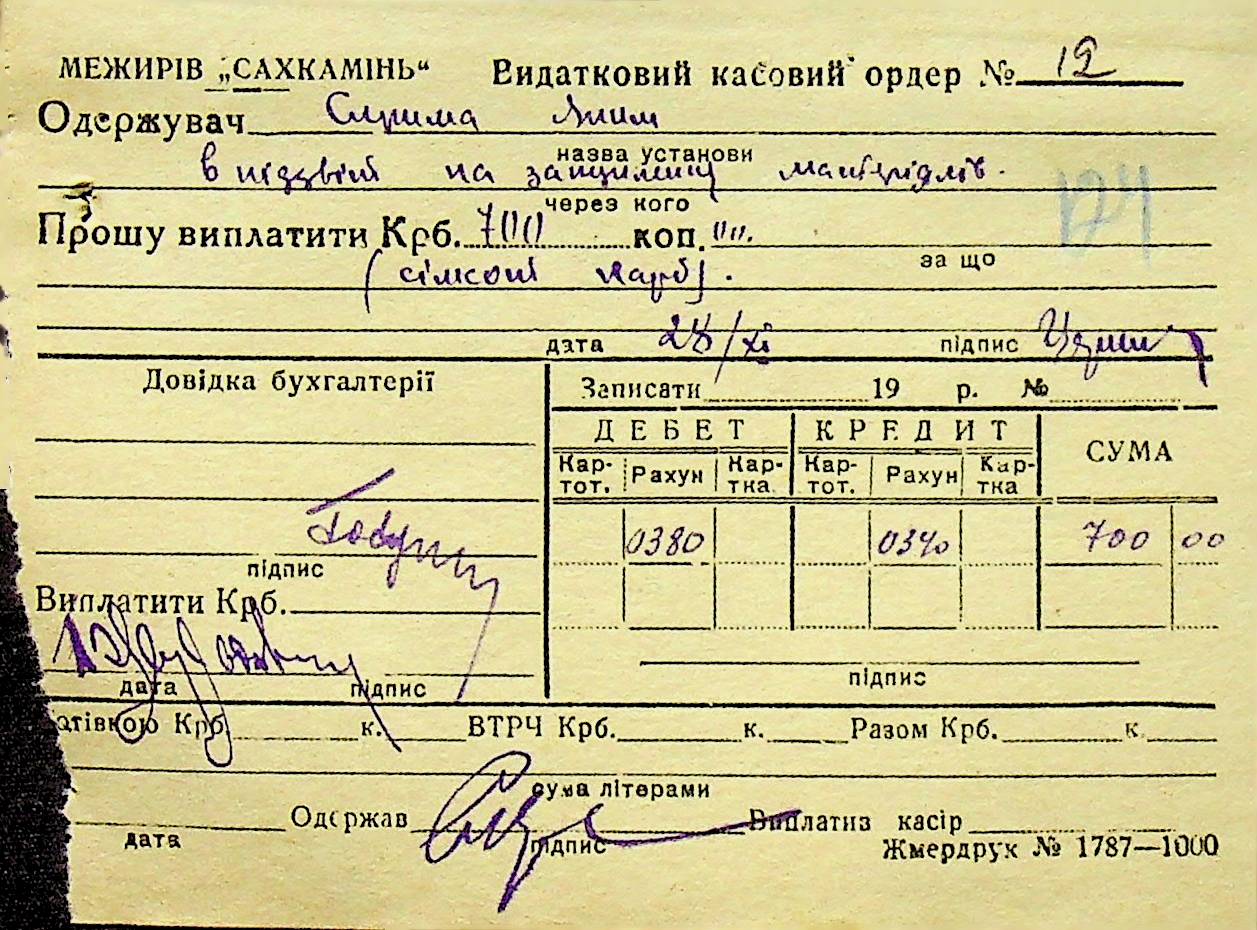 МЕЖИРІВ „САХКАМІНЬ“ Видатковий касовий ордер № 12
Одержувач
назва установи
в підзвіт на
через кого
124
Прошу виплатити Крб. 700 коп. 00.
за що
(сімсот карб).
дата 28/XI підпис
Довідка бухгалтерії
Записати 19 р. №
ДЕБЕТ КРЕДИТ СУМА
Кар-тот. Рахун Кар-тка. Кар-тот. Рахун Кар-тка
0380 0340 700 00
підпис
Виплатити Крб.
дата підпис
підпис
отівкою Крб. к. ВТРЧ Крб. к. Разом Крб. к.
сума літерами
Одержав Виплатив касір
дата підпис
Жмердрук № 1787—1000